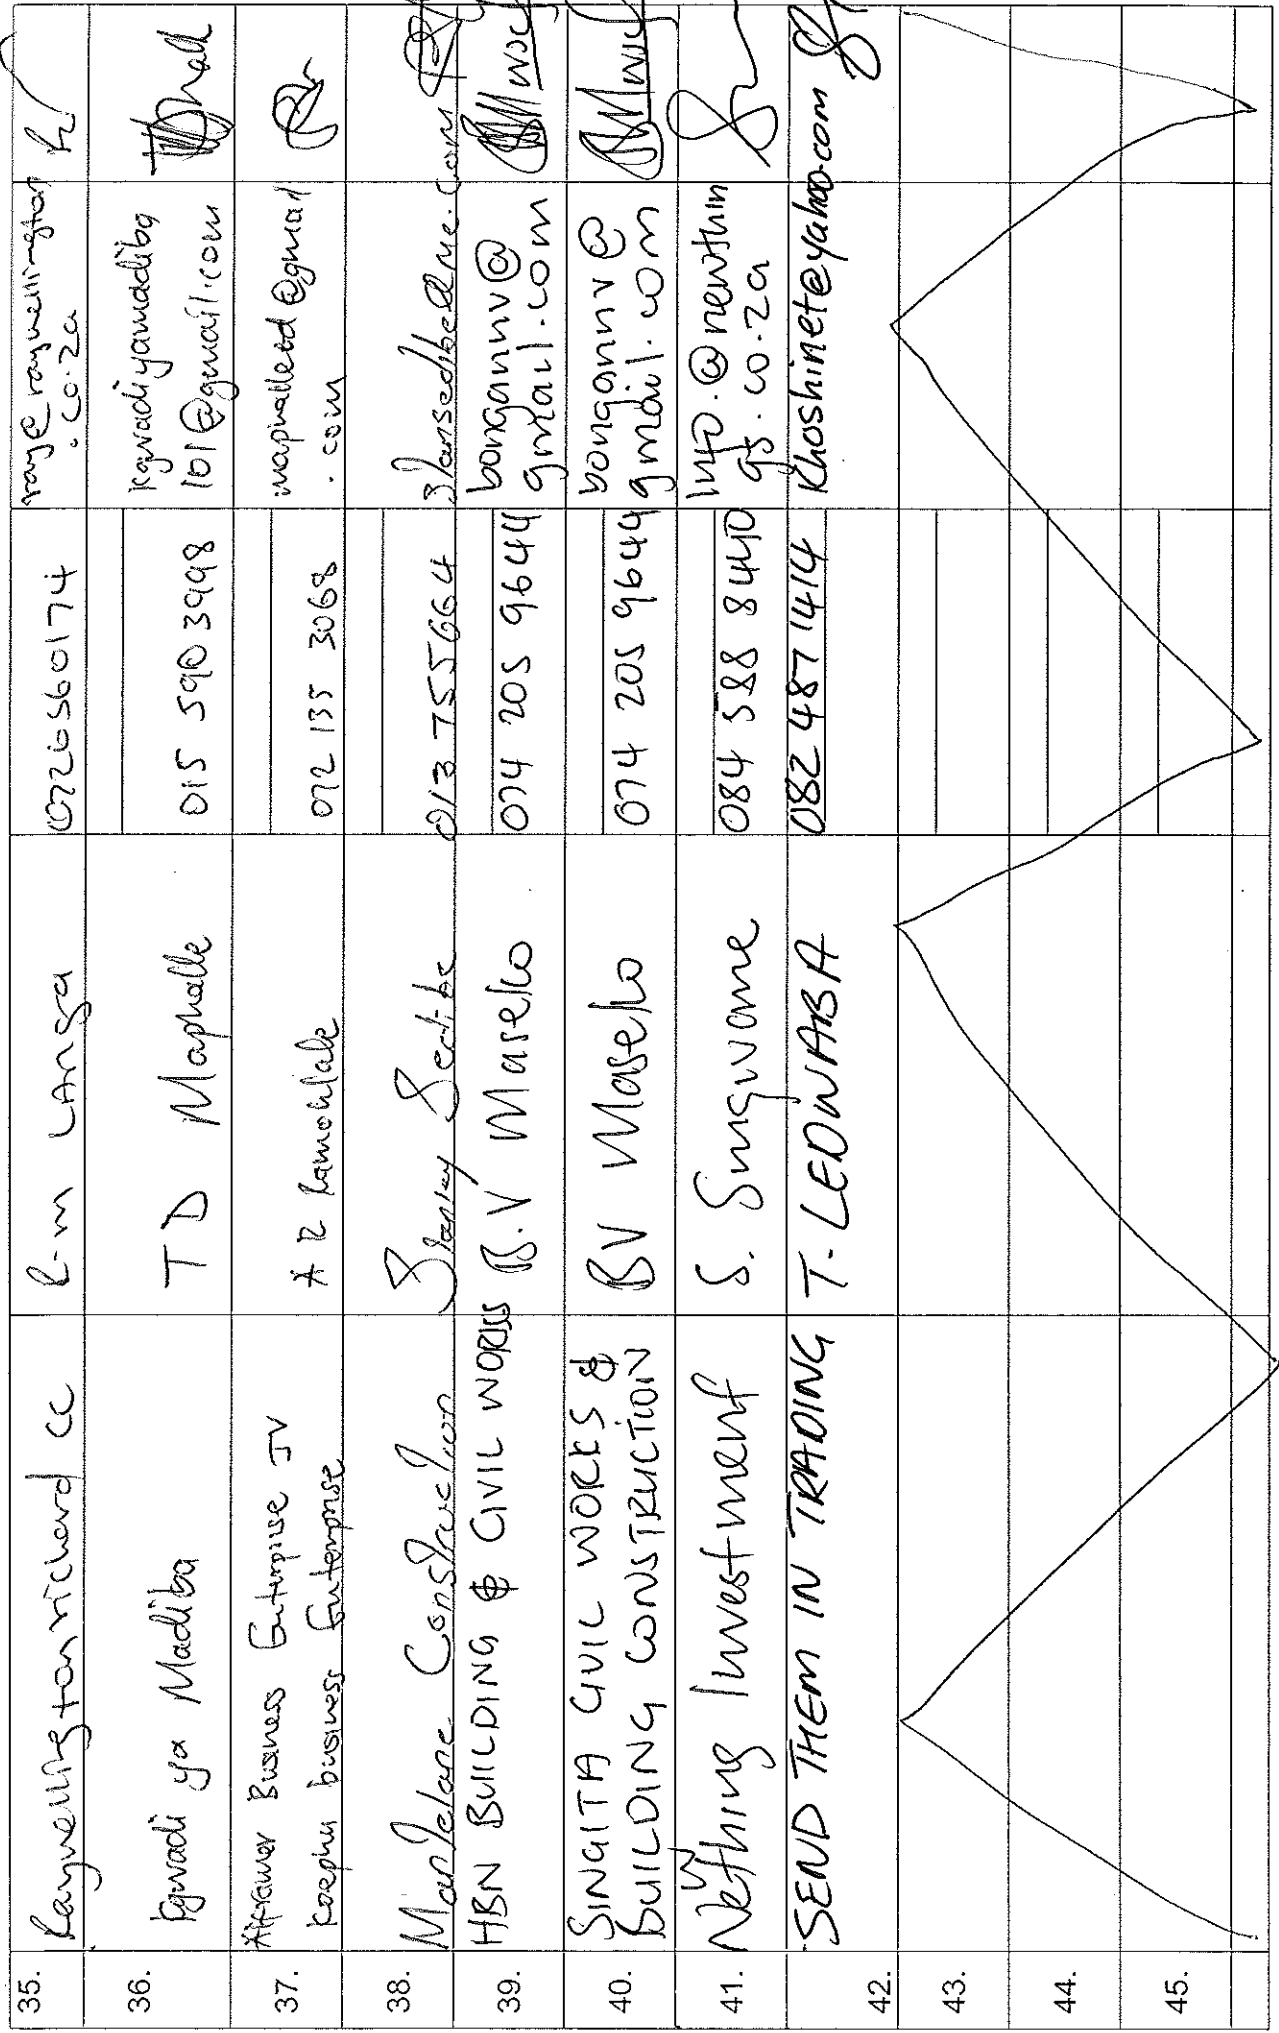 35. Raywellington richard CC R-m LANGA 0726560174 ray@raywellington
.co.za
36. Kgwadi ya Madiba TD Maphalle 015 590 3998 kgwadiyamadiba
101@gmail.com
37. Business Enterprise JV
Koephu business Enterprise A R Ramohlale 072 135 3068 maphalletd@gmail
.com
38. Construction Stanley Sedibe 013 755664
39. HBN BUILDING & CIVIL WORKS B.V Maseko 074 205 9644 bongannv@
gmail.com
40. SINGITA CIVIL WORKS &
BUILDING CONSTRUCTION BV Maseko 074 205 9644 bongannv@
gmail.com
41. Newthing Investment S. Singwane 084 588 8440 info.@newthin
gs.co.za
42. SEND THEM IN TRADING T. LEDWABA 082 487 1414 Khoshinet@yahoo.com
43.
44.
45.